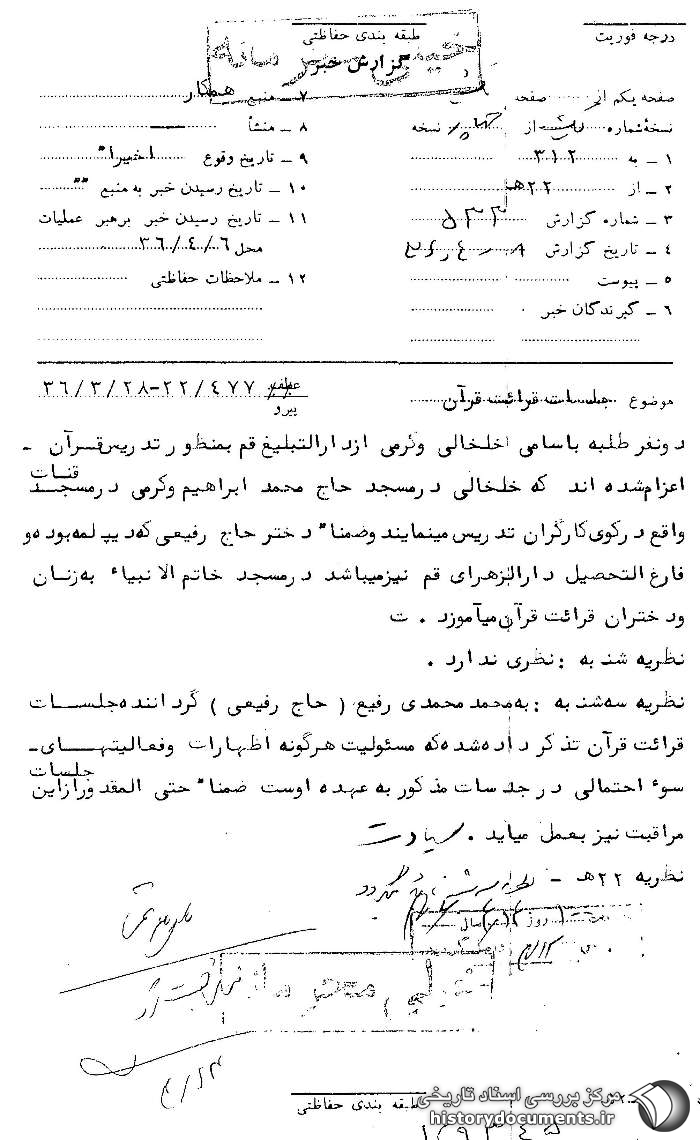 درجه فوریت
طبقه بندی حفاظتی
خیلی محرمانه
گزارش خبر
صفحه یکم از صفحه
نسخهٔ شماره از نسخه
۱ ـ به ۳۱۲
۲ ـ از ۲۲هـ
۳ ـ شماره گزارش
۴ ـ تاریخ گزارش
۵ ـ پیوست
۶ ـ گیرندگان خبر
۷ ـ منبع همکار
۸ ـ منشأ
۹ ـ تاریخ وقوع اخیرا"
۱۰ ـ تاریخ رسیدن خبر به منبع ""
۱۱ ـ تاریخ رسیدن خبر برهبر عملیات
محل ۳۶/۴/۶
۱۲ ـ ملاحظات حفاظتی
موضوع جلسات قرائت قرآن
عطف
پیرو
۳۶/۳/۲۸-۲۲/۴۷۷
دونفر طلبه باسامی اخلخالی وکرمی ازدارالتبلیغ قم بمنظور تدریس قرآن ـ
اعزام شده اند که خلخالی درمسجد حاج محمد ابراهیم وکرمی درمسجد قنات
واقع درکوی کارگران تدریس مینمایند وضمنا" دختر حاج رفیعی که دیپلمه بوده و
فارغ التحصیل دارالزهرای قم نیزمیباشد درمسجد خاتم الانبیاء به زنان
ودختران قرائت قرآن میآموزد . ت
نظریه شنبه : نظری ندارد .
نظریه سه شنبه : به محمد محمدی رفیع ( حاج رفیعی ) گرداننده جلسات
قرائت قرآن تذکر داده شده که مسئولیت هرگونه اظهارات وفعالیتهای-
سوء احتمالی در جلسات مذکور به عهده اوست ضمنا" حتی المقدور ازاین جلسات
مراقبت نیز بعمل میاید . سیادت
نظریه ۲۲هـ -
خیلی محرمانه
طبقه بندی حفاظتی
مرکز بررسی اسناد تاریخی
historydocuments.ir